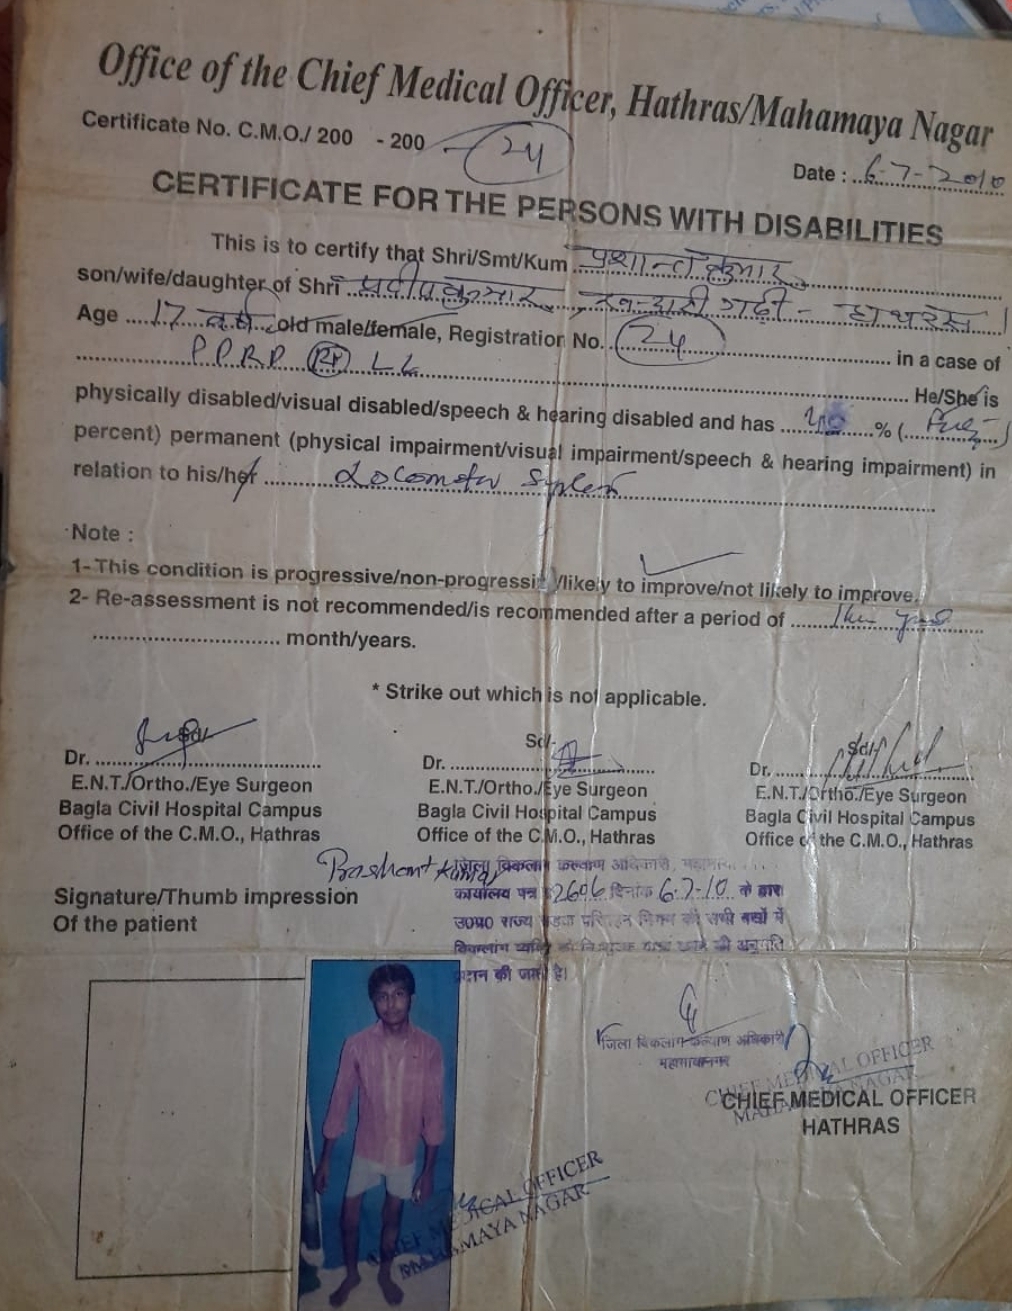 Office of the Chief Medical Officer, Hathras/Mahamaya Nagar
Certificate No. C.M.O./ 200 - 200 24
Date : 6-7-2010
CERTIFICATE FOR THE PERSONS WITH DISABILITIES
This is to certify that Shri/Smt/Kum प्रशान्त कुमार
son/wife/daughter of Shri प्रदीप कुमार गढ़ी - हाथरस
Age 17 वर्ष old male/female, Registration No. 24 in a case of
P.P.R.P. L L He/She is
physically disabled/visual disabled/speech & hearing disabled and has 40 % (
percent) permanent (physical impairment/visual impairment/speech & hearing impairment) in
relation to his/her Locomotor System
Note :
1- This condition is progressive/non-progressive/likely to improve/not likely to improve.
2- Re-assessment is not recommended/is recommended after a period of
month/years.
* Strike out which is not applicable.
Dr. Dr. Sd/- Dr. Sd/-
E.N.T./Ortho./Eye Surgeon E.N.T./Ortho./Eye Surgeon E.N.T./Ortho./Eye Surgeon
Bagla Civil Hospital Campus Bagla Civil Hospital Campus Bagla Civil Hospital Campus
Office of the C.M.O., Hathras Office of the C.M.O., Hathras Office of the C.M.O., Hathras
Prashant Kumar जिला विकलांग कल्याण अधिकारी,
Signature/Thumb impression कार्यालय पत्र 2606 दिनांक 6-7-10 के द्वारा
Of the patient उ०प्र० राज्य परिवहन निगम की सभी बसों में
विकलांग व्यक्ति को की अनुमति
प्रदान की जाती है।
जिला विकलांग कल्याण अधिकारी
महामायानगर
CHIEF MEDICAL OFFICER
MAHAMAYA NAGAR
CHIEF MEDICAL OFFICER
HATHRAS
CHIEF MEDICAL OFFICER
MAHAMAYA NAGAR